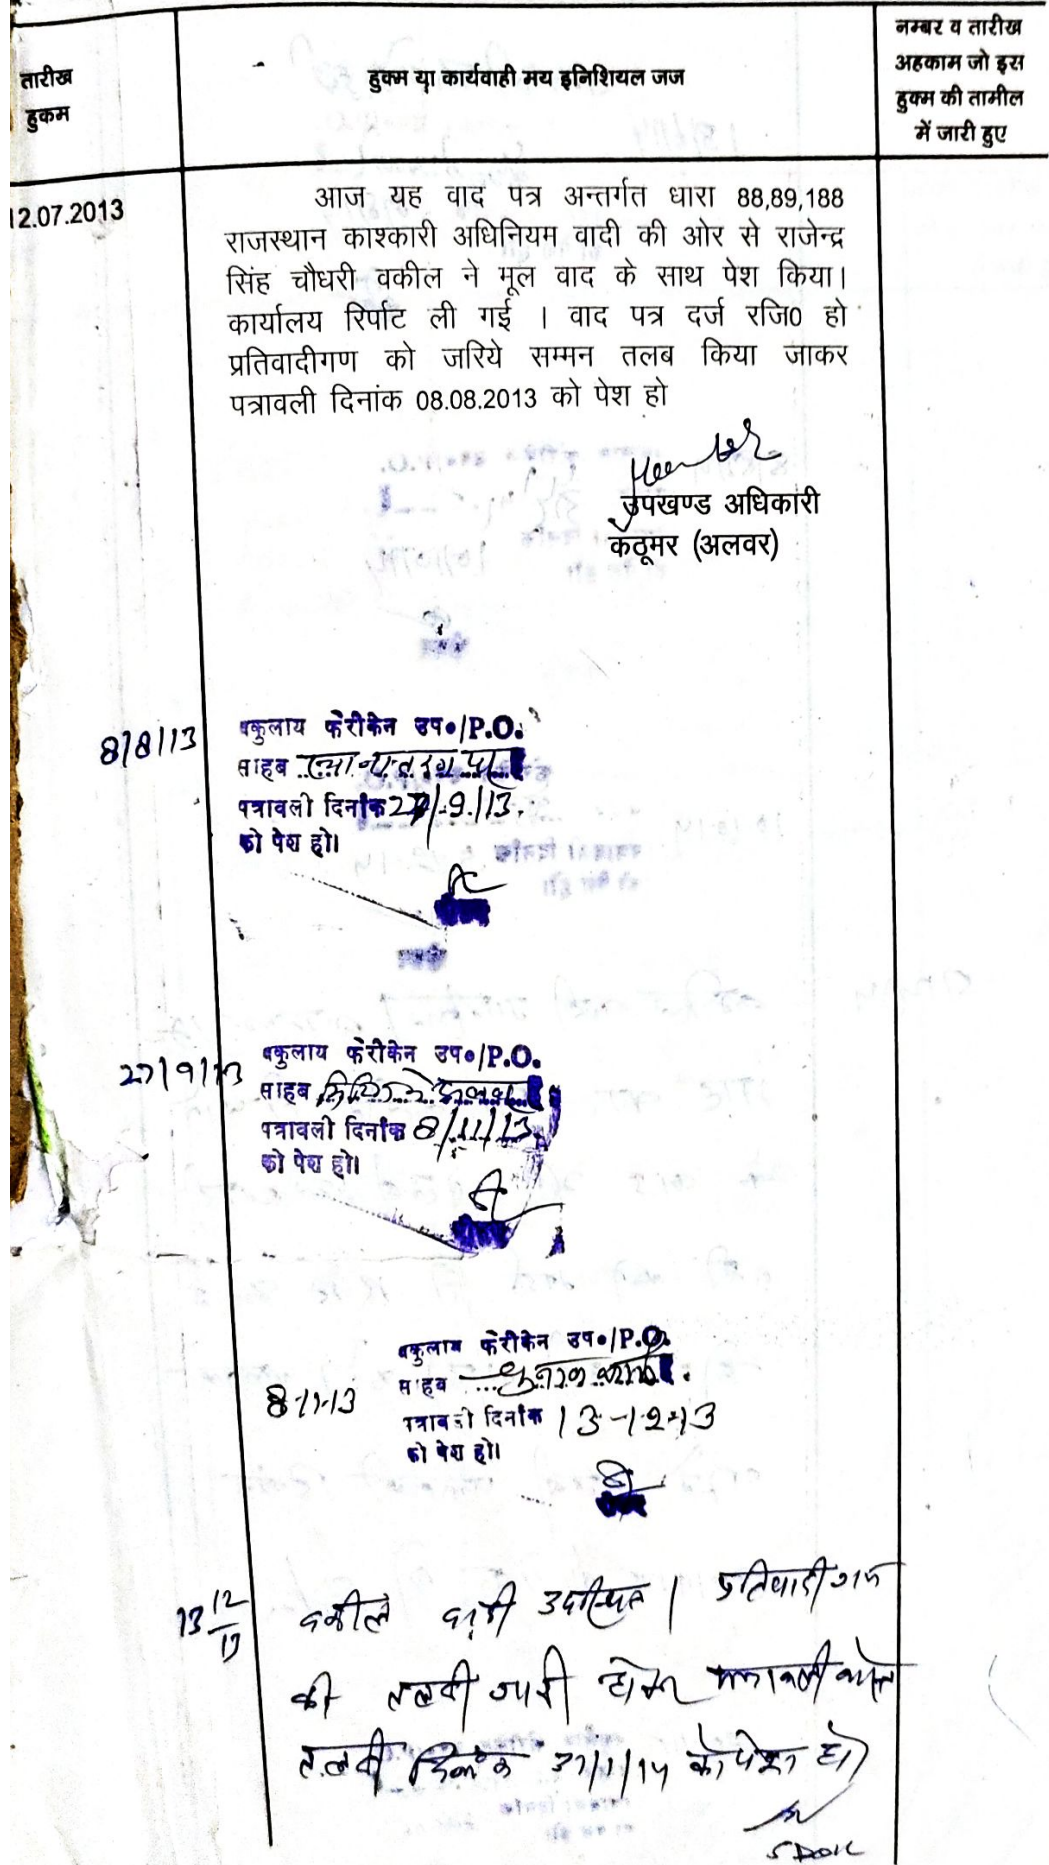 तारीख
हुकम
हुक्म या कार्यवाही मय इनिशियल जज
नम्बर व तारीख
अहकाम जो इस
हुक्म की तामील
में जारी हुए
12.07.2013
आज यह वाद पत्र अन्तर्गत धारा 88,89,188
राजस्थान काश्कारी अधिनियम वादी की ओर से राजेन्द्र
सिंह चौधरी वकील ने मूल वाद के साथ पेश किया।
कार्यालय रिर्पाट ली गई । वाद पत्र दर्ज रजि0 हो
प्रतिवादीगण को जरिये सम्मन तलब किया जाकर
पत्रावली दिनांक 08.08.2013 को पेश हो
उपखण्ड अधिकारी
कठूमर (अलवर)
8/8/13
वकुलाय फेरीकेन उप०/P.O.
साहब
पत्रावली दिनांक 27/9/13.
को पेश हो।
27/9/13
वकुलाय फेरीकेन उप०/P.O.
साहब
पत्रावली दिनांक 8/11/13
को पेश हो।
8-11-13
वकुलाय फेरीकेन उप०/P.O.
साहब
पत्रावली दिनांक 13-12-13
को पेश हो।
13/12/13
वकील वादी उपस्थित । प्रतिवादीगण
की तलबी जारी होकर पत्रावली वास्ते
तलबी दिनांक 31/1/14 को पेश हो